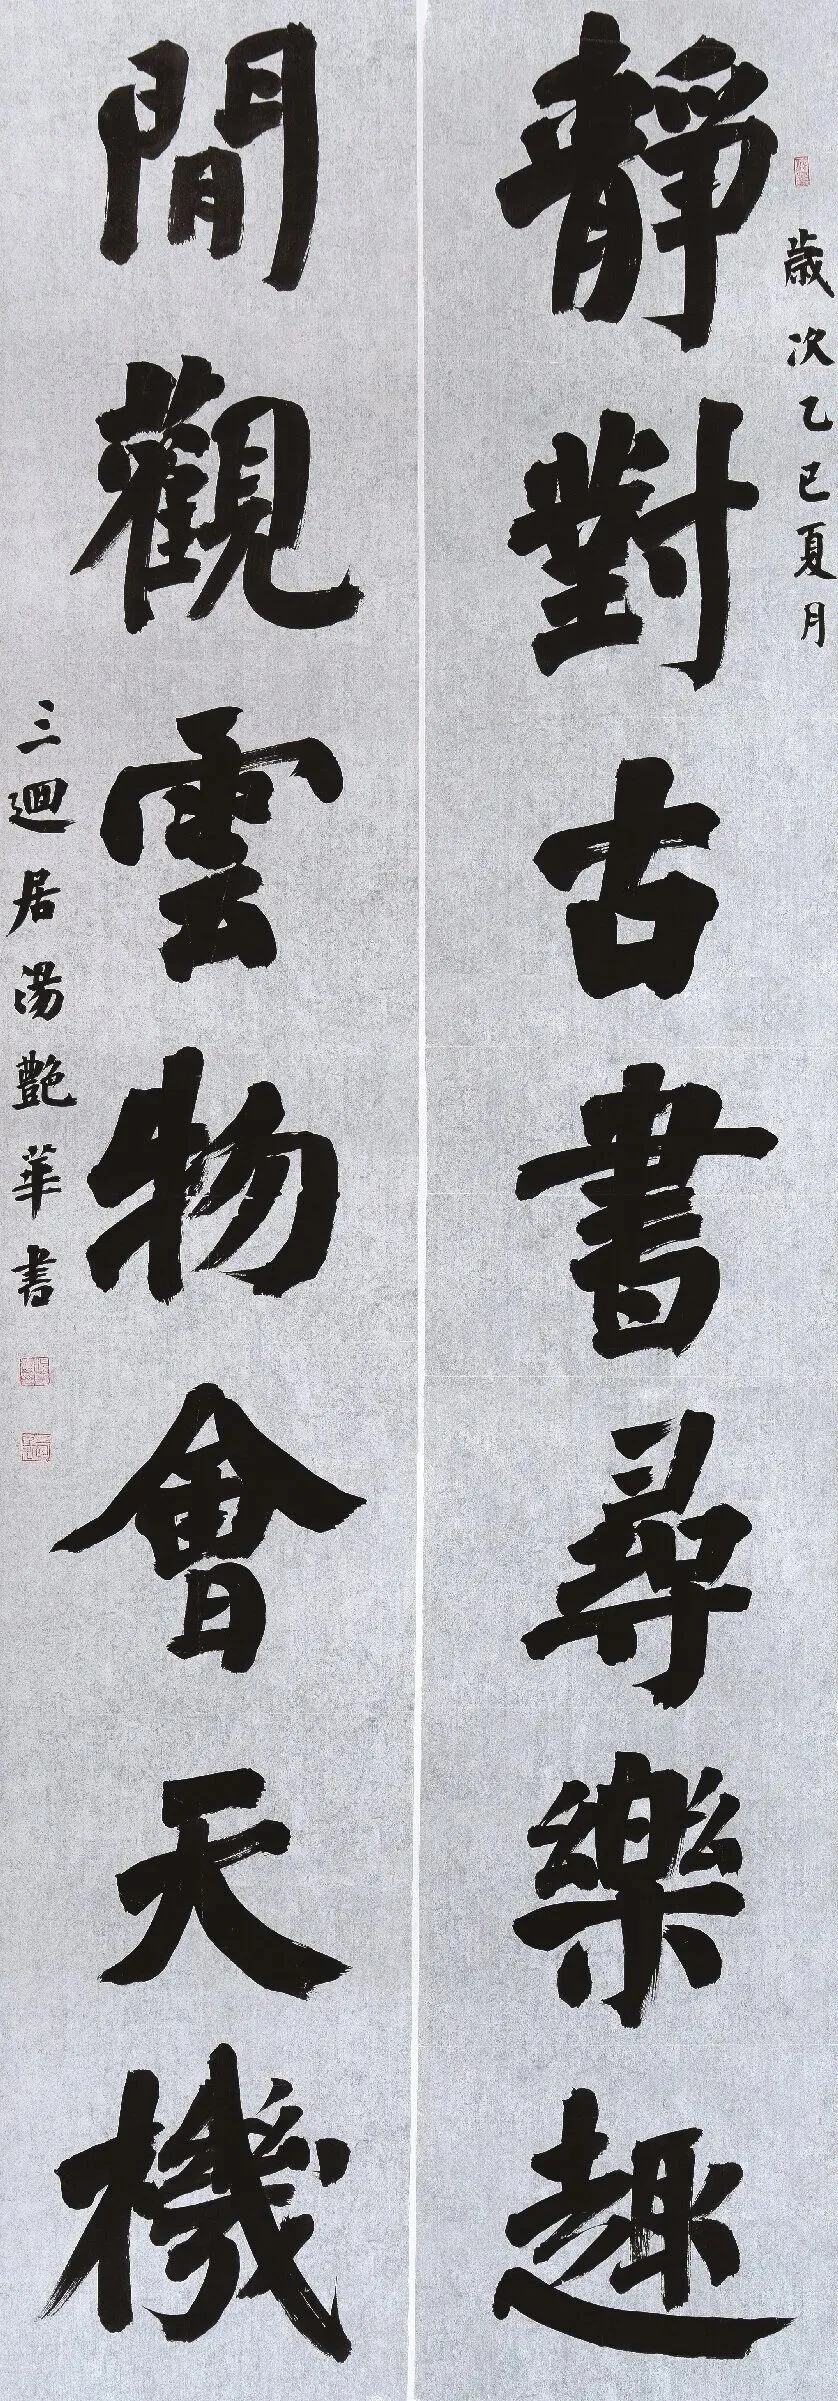 靜對古書尋樂趣
歲次乙巳夏月
閒觀雲物會天機
三迴居湯艷華書